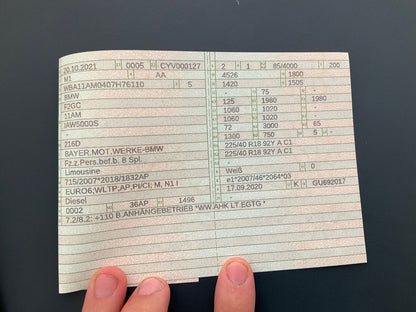 20.10.2021 0005 CYV000127
M1 AA
WBA11AM0407H76110 5
BMW
F2GC
11AM
IAW5000S
-
216D
BAYER.MOT.WERKE-BMW
Fz.z.Pers.bef.b. 8 Spl.
Limousine
715/2007*2018/1832AP
EURO6;WLTP;AP;PI/CI; M, N1 I
Diesel
0002 36AP 1496
7.2/8.2: +110 B.ANHÄNGEBETRIEB *WW.AHK LT.EGTG *
2 1 85/4000 200
4526 1800
1420 1505 -
- 75 -
125 1980 1980
1060 1020 -
1060 1020 -
72 3000 65
1300 750 5 -
225/40 R18 92Y A C1
225/40 R18 92Y A C1
-
Weiß 0
e1*2007/46*2064*03
17.09.2020 K GU692017
-